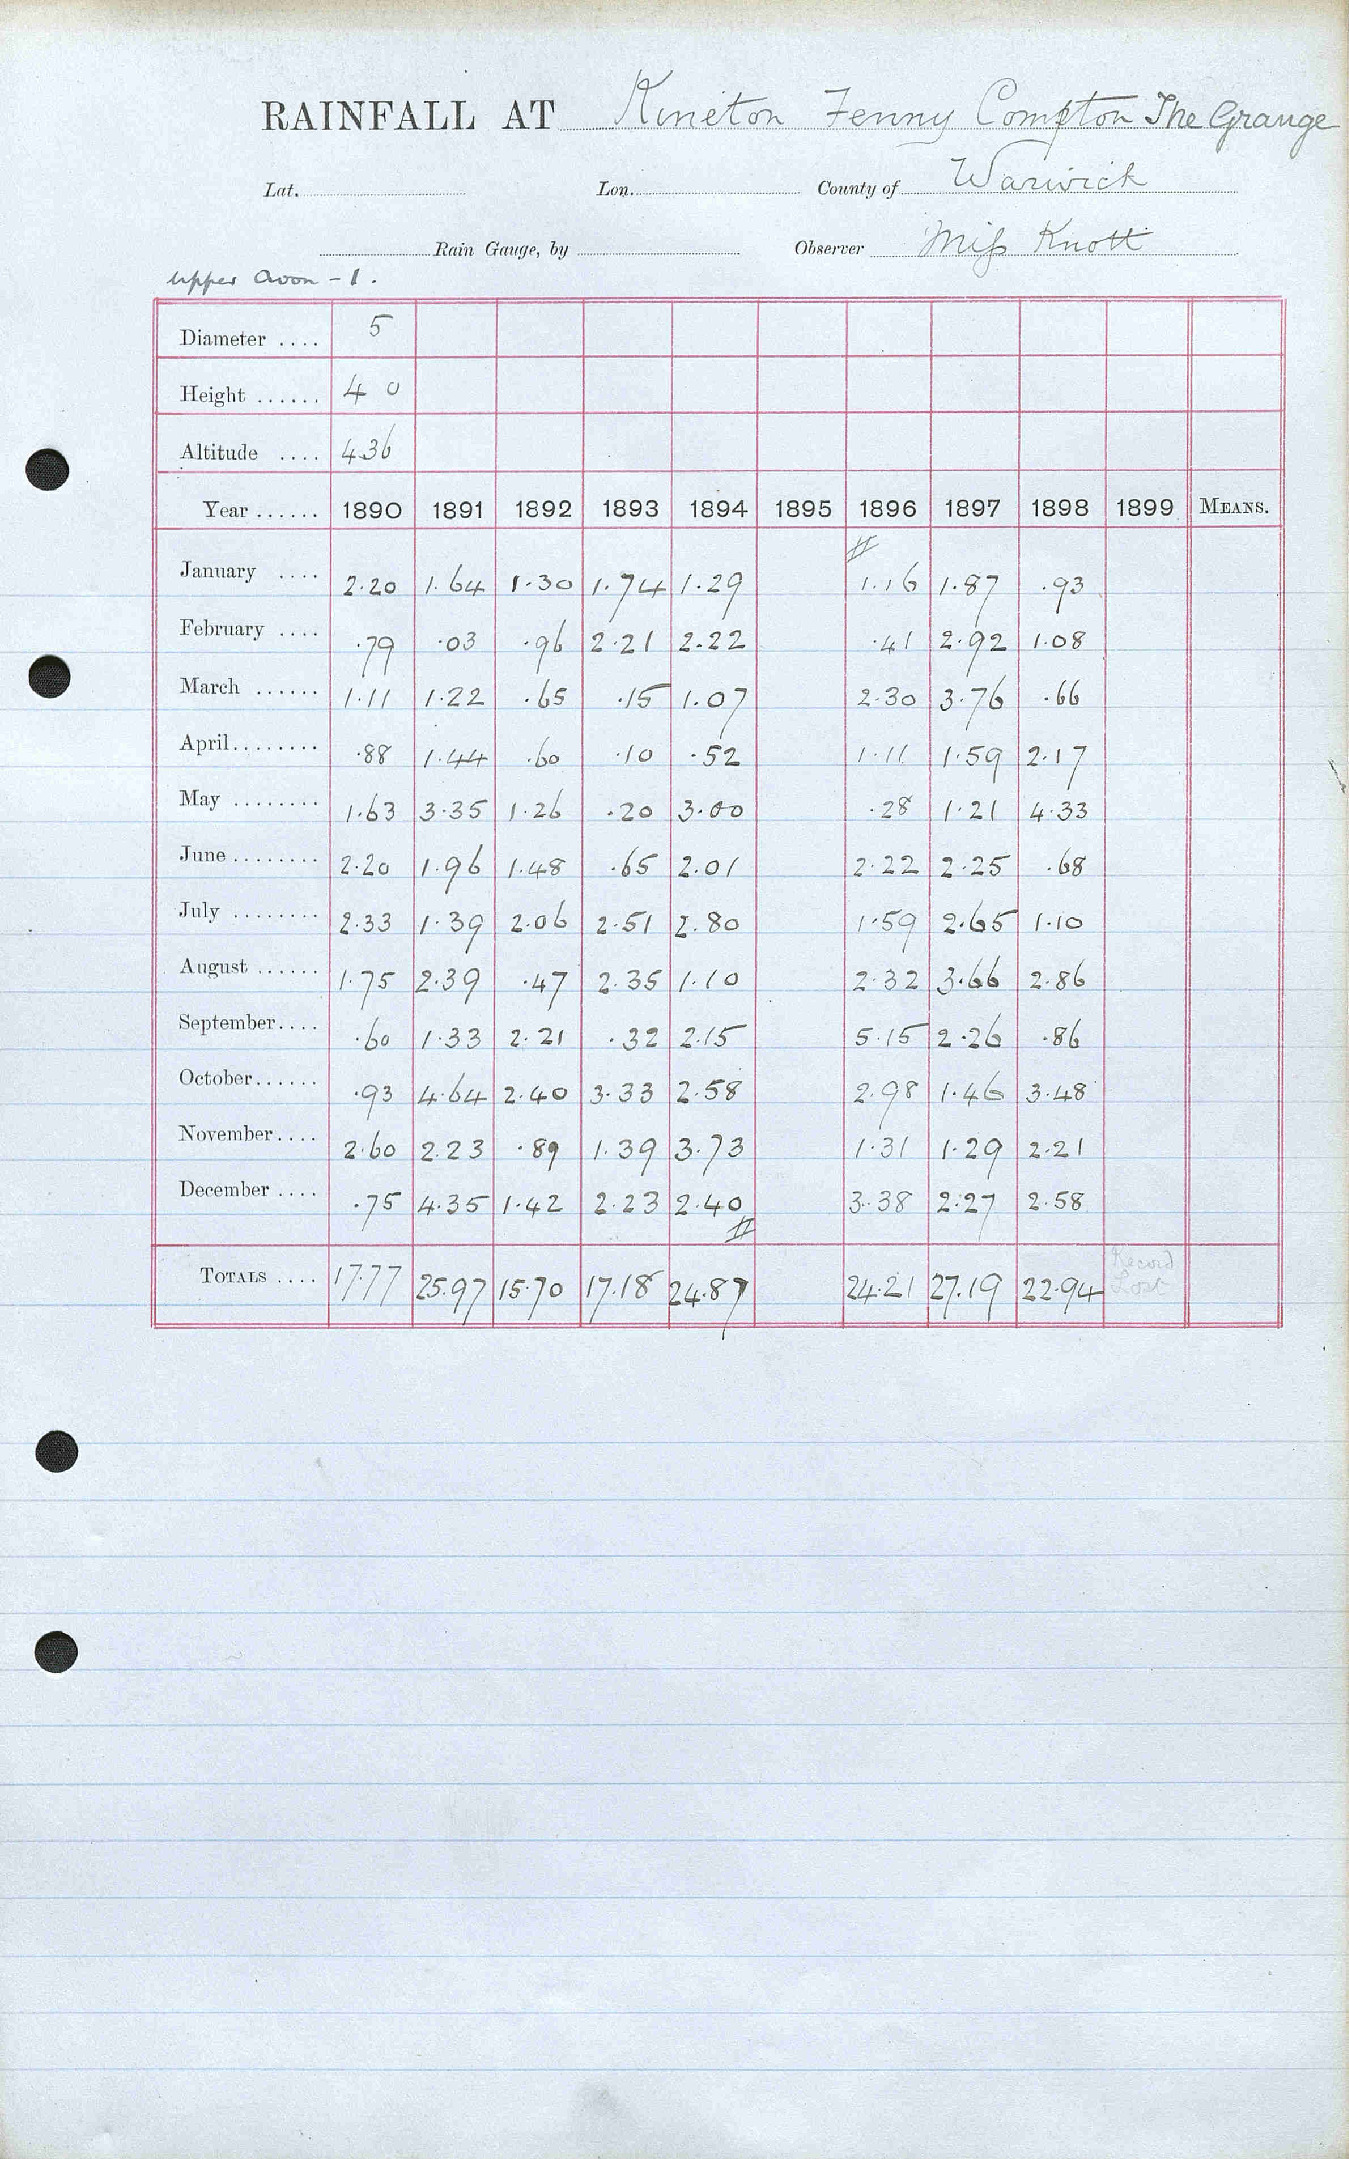 RAINFALL AT Kineton Fenny Compton The Grange
Lat. Lon. County of Warwick
Rain Gauge, by Observer Miss Knott
Upper Avon - 1.
Diameter .... 5
Height ...... 4 0
Altitude .... 436
Year ...... 1890 1891 1892 1893 1894 1895 1896 1897 1898 1899 MEANS.
January .... 2.20 1.64 1.30 1.74 1.29 1.16 1.87 .93
February .... .79 .03 .96 2.21 2.22 .41 2.92 1.08
March ...... 1.11 1.22 .65 .15 1.07 2.30 3.76 .66
April ........ .88 1.44 .60 .10 .52 1.11 1.59 2.17
May ........ 1.63 3.35 1.26 .20 3.00 .28 1.21 4.33
June ........ 2.20 1.96 1.48 .65 2.01 2.22 2.25 .68
July ........ 2.33 1.39 2.06 2.51 2.80 1.59 2.65 1.10
August ...... 1.75 2.39 .47 2.35 1.10 2.32 3.66 2.86
September .... .60 1.33 2.21 .32 2.15 5.15 2.26 .86
October ...... .93 4.64 2.40 3.33 2.58 2.98 1.46 3.48
November .... 2.60 2.23 .89 1.39 3.73 1.31 1.29 2.21
December .... .75 4.35 1.42 2.23 2.40 3.38 2.27 2.58
TOTALS .... 17.77 25.97 15.70 17.18 24.87 24.21 27.19 22.94 Record Lost